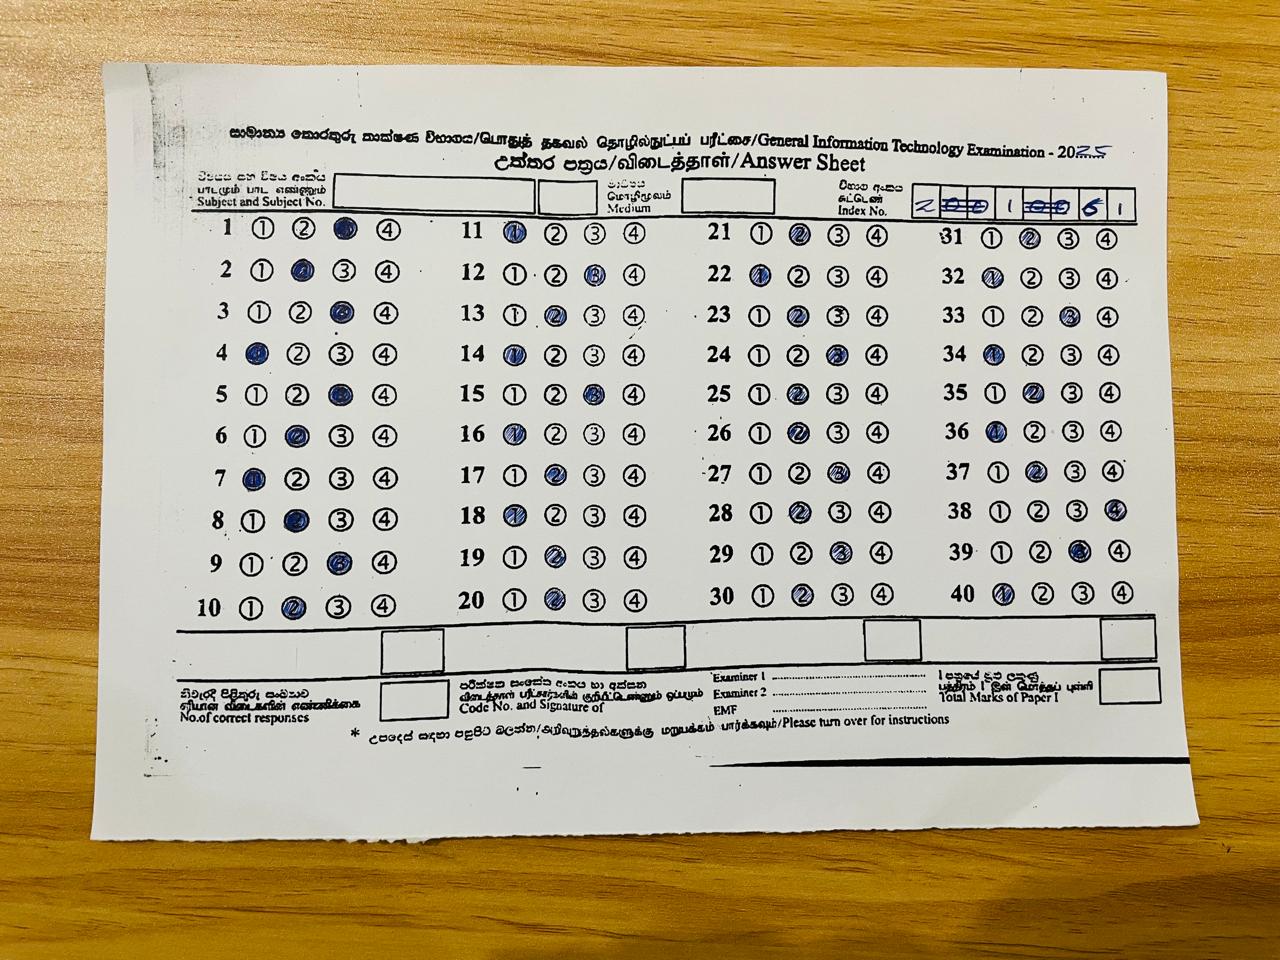 සාමාන්‍ය තොරතුරු තාක්ෂණ විභාගය/பொதுத் தகவல் தொழில்நுட்பப் பரீட்சை/General Information Technology Examination - 2025
උත්තර පත්‍රය/விடைத்தாள்/Answer Sheet
විෂයය සහ විෂය අංකය
பாடமும் பாட எண்ணும்
Subject and Subject No.
මාධ්‍යය
மொழிமூலம்
Medium
විභාග අංකය
சுட்டெண்
Index No.
2 0 0 1 0 0 6 1
1 ① ② ③ ④ 11 ① ② ③ ④ 21 ① ② ③ ④ 31 ① ② ③ ④
2 ① ② ③ ④ 12 ① ② ③ ④ 22 ① ② ③ ④ 32 ① ② ③ ④
3 ① ② ③ ④ 13 ① ② ③ ④ 23 ① ② ③ ④ 33 ① ② ③ ④
4 ① ② ③ ④ 14 ① ② ③ ④ 24 ① ② ③ ④ 34 ① ② ③ ④
5 ① ② ③ ④ 15 ① ② ③ ④ 25 ① ② ③ ④ 35 ① ② ③ ④
6 ① ② ③ ④ 16 ① ② ③ ④ 26 ① ② ③ ④ 36 ① ② ③ ④
7 ① ② ③ ④ 17 ① ② ③ ④ 27 ① ② ③ ④ 37 ① ② ③ ④
8 ① ② ③ ④ 18 ① ② ③ ④ 28 ① ② ③ ④ 38 ① ② ③ ④
9 ① ② ③ ④ 19 ① ② ③ ④ 29 ① ② ③ ④ 39 ① ② ③ ④
10 ① ② ③ ④ 20 ① ② ③ ④ 30 ① ② ③ ④ 40 ① ② ③ ④
නිවැරදි පිළිතුරු සංඛ්‍යාව
சரியான விடைகளின் எண்ணிக்கை
No.of correct responses
පරීක්ෂක සංකේත අංකය හා අත්සන
விடைத்தாள் பரீட்சகரின் குறியீட்டெண்ணும் ஒப்பமும்
Code No. and Signature of
Examiner 1
Examiner 2
EMF
I පත්‍රයේ මුළු ලකුණු
பத்திரம் I இன் மொத்தப் புள்ளி
Total Marks of Paper I
* උපදෙස් සඳහා පළමුපිට බලන්න/அறிவுறுத்தல்களுக்கு மறுபக்கம் பார்க்கவும்/Please turn over for instructions